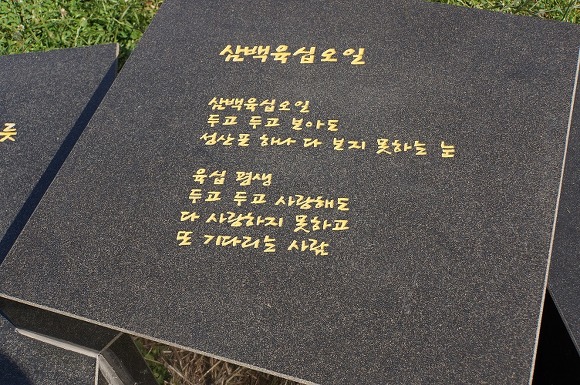 삼백육십오일
삼백육십오일
두고 두고 보아도
성산포 하나 다 보지 못하는 눈
육십 평생
두고 두고 사랑해도
다 사랑하지 못하고
또 기다리는 사람
릇